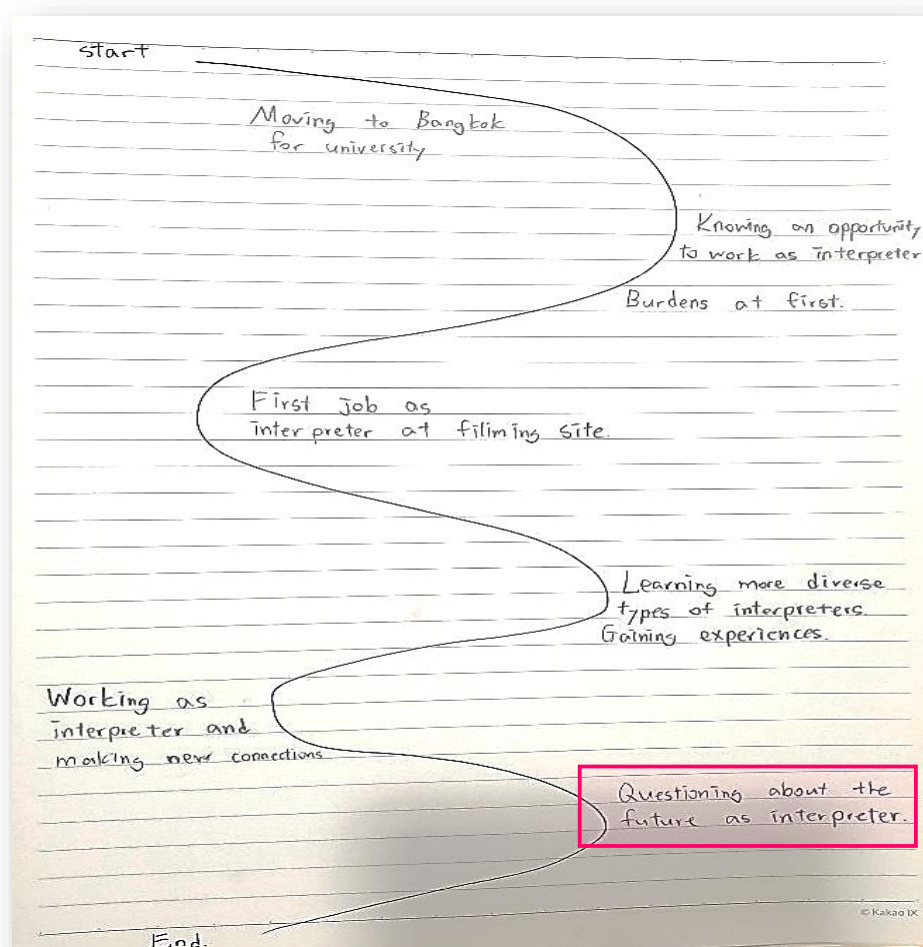 start
Moving to Bangkok
for university
Knowing an opportunity
to work as interpreter
Burdens at first.
First job as
interpreter at filiming site.
Learning more diverse
types of interpreters.
Gaining experiences.
Working as
interpreter and
making new connections
Questioning about the
future as interpreter.
© Kakao IX
End.